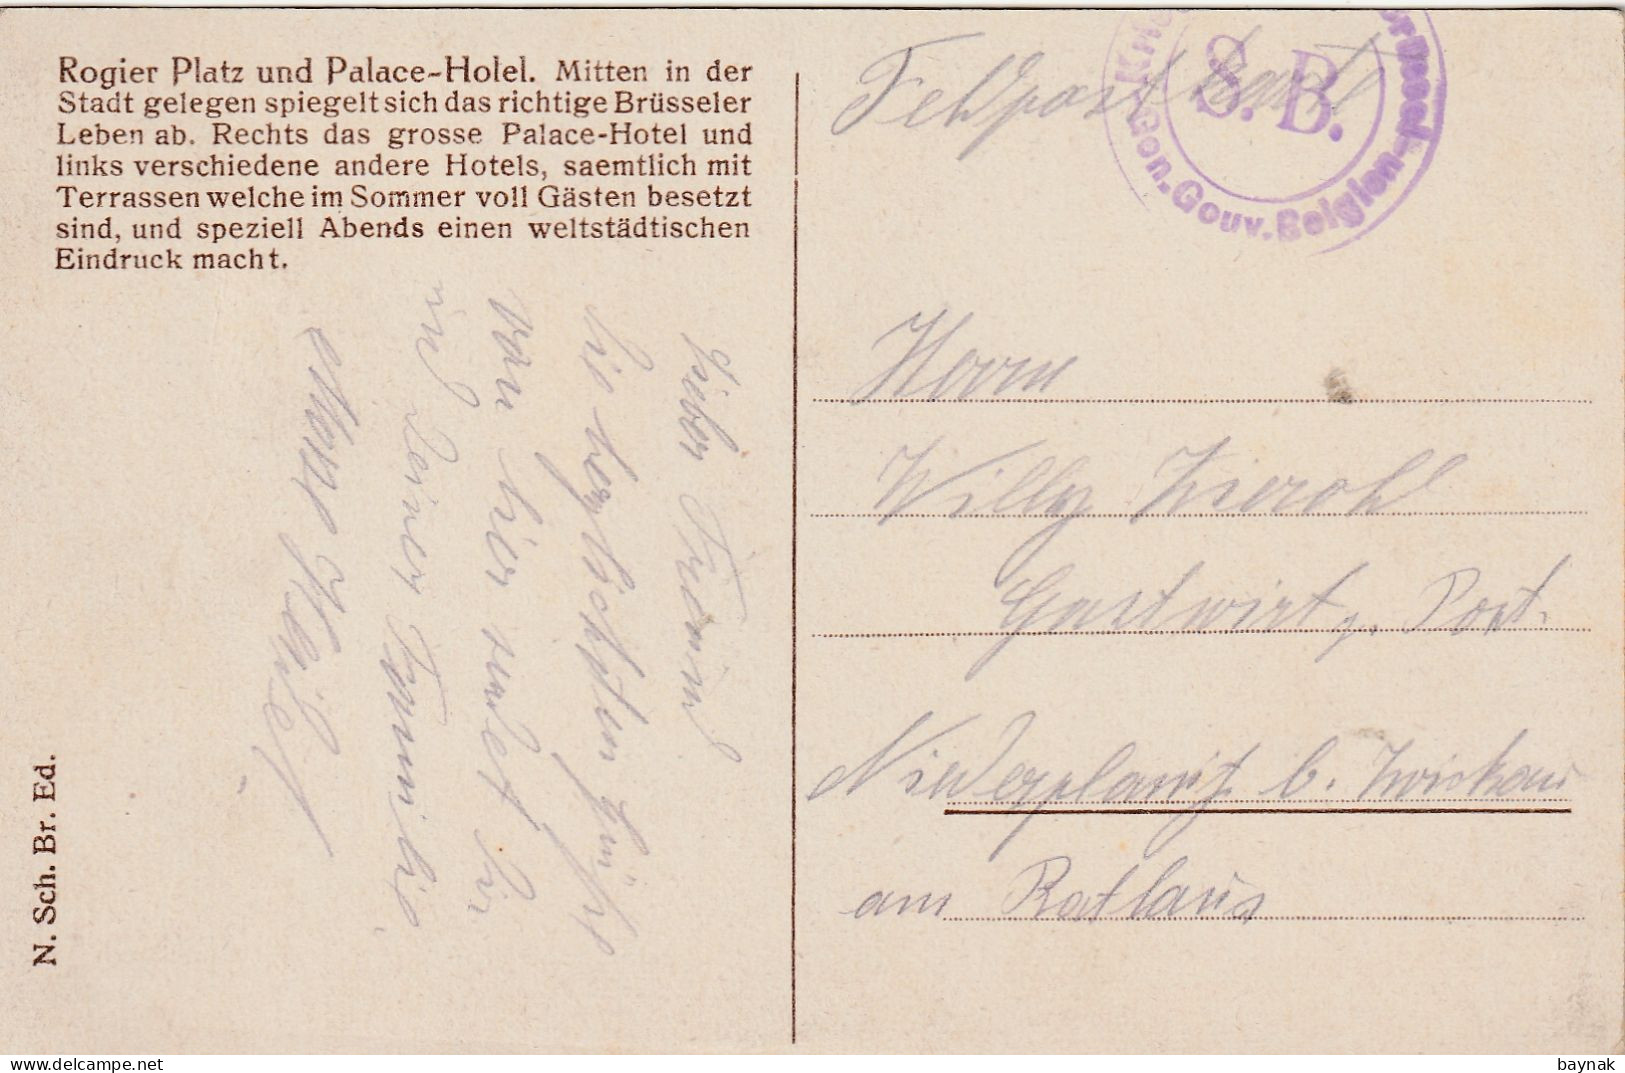 Rogier Platz und Palace-Holel. Mitten in der
Stadt gelegen spiegelt sich das richtige Brüsseler
Leben ab. Rechts das grosse Palace-Hotel und
links verschiedene andere Hotels, saemtlich mit
Terrassen welche im Sommer voll Gästen besetzt
sind, und speziell Abends einen weltstädtischen
Eindruck macht.
N. Sch. Br. Ed.
Lieber Freund
Die herzlichsten Grüße
von hier sendet Dir
und Deiner Familie
Feldpostkarte
S. B.
Gen. Gouv. Belgien
Brüssel
Herrn
Willy
Gastwirt z. Post.
Niederplanitz b. Zwickau
am Rathaus
baynak